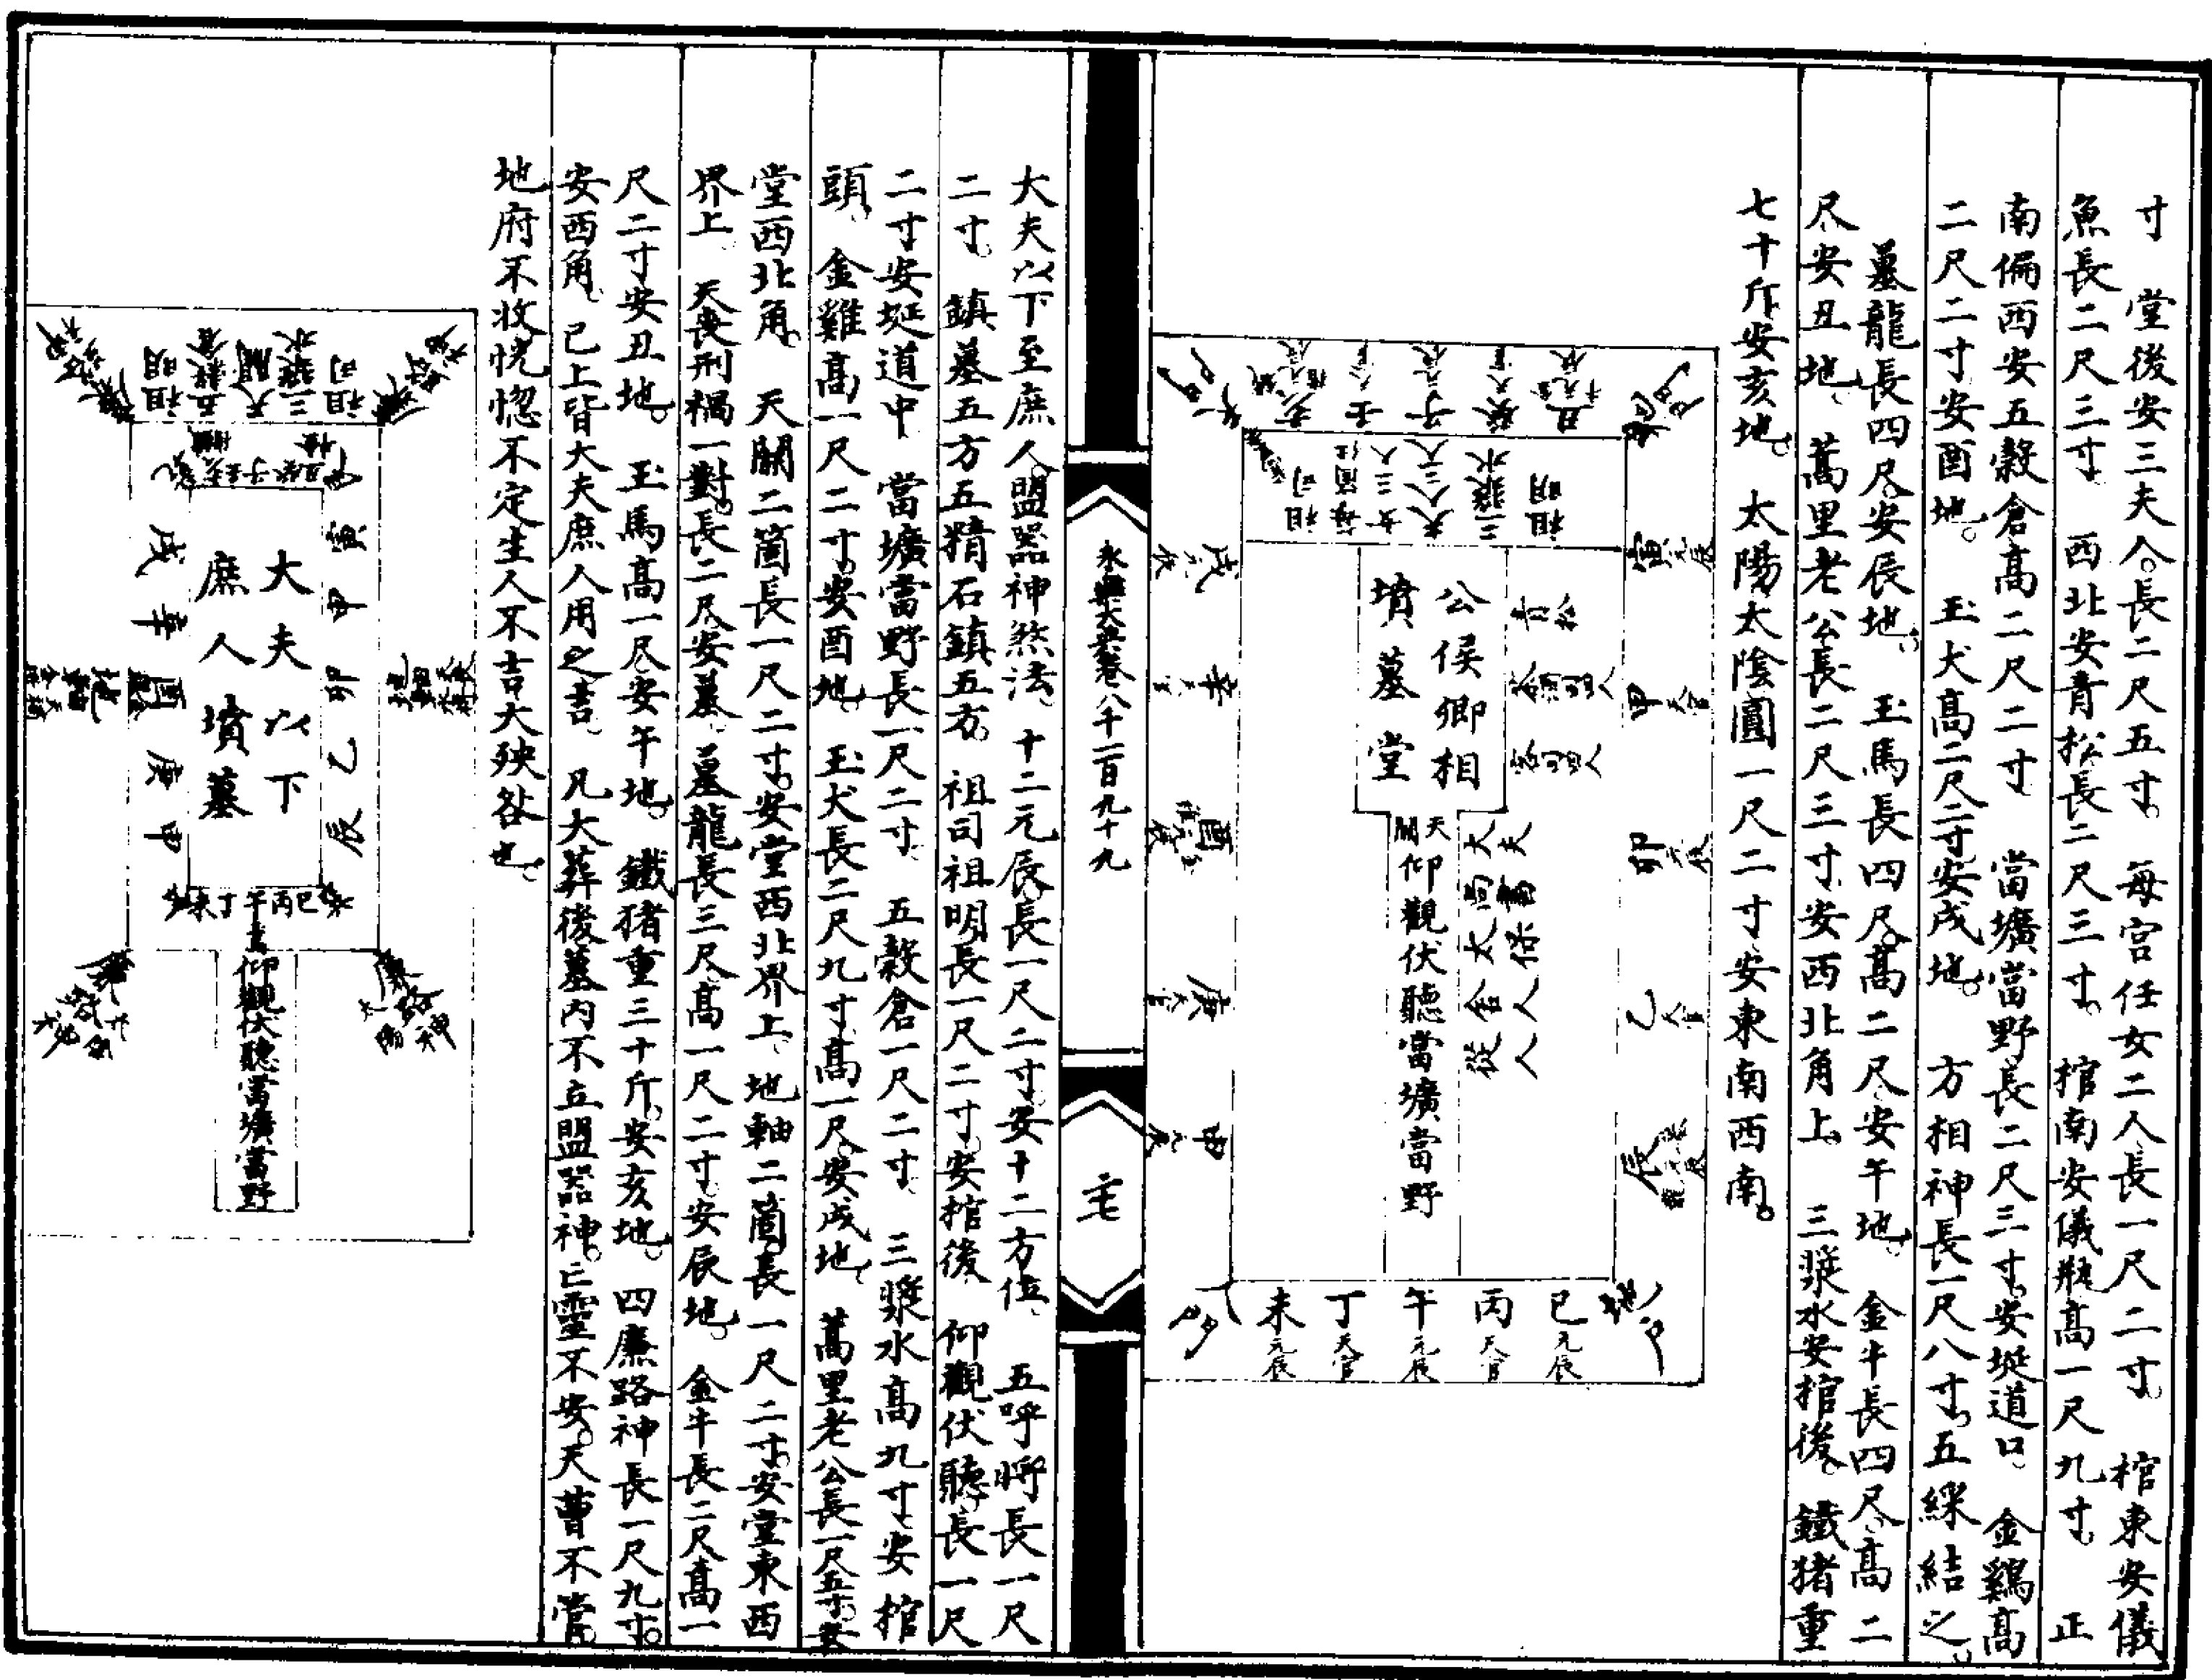 寸　堂後安三夫人。長二尺五寸。　每宫任女二人長一尺二寸。　棺東安儀
魚長二尺三寸　西北安青松長二尺三寸。　棺南安儀瓶高一尺九寸。　正
南偏西安五穀倉高二尺二寸　當壙當野長二尺三寸。安埏道口。　金鷄高
二尺二寸安酉地。　玉犬高二尺二寸安戌地。　方相神長一尺八寸。五綵結之。
墓龍長四尺。安辰地。　玉馬長四尺。高二尺安午地。　金牛長四尺。高二
尺安丑地。　蒿里老公長二尺三寸安西北角上　三漿水安棺後。　鐵猪重
七十斤安亥地。　太陽太陰圓一尺二寸安東南西南。
公侯卿相
墳墓堂
天關
仰觀伏聽當壙當野
祖司
三漿水
祖明
巳元辰
丙天官
午元辰
丁天官
未元辰
永樂大典卷八千一百九十九
大夫以下至庶人盟器神煞法。　十二元辰長一尺二寸。安十二方位。　五呼將長一尺
二寸。　鎮墓五方五精石鎮五方。　祖司祖明長一尺二寸。安棺後　仰觀伏聽長一尺
二寸安埏道中　當壙當野長一尺二寸　五穀倉一尺二寸　三漿水高九寸安棺
頭。　金雞高一尺二寸。安酉地。　玉犬長二尺九寸高一尺。安戌地。　蒿里老公長一尺五寸。安
堂西北角。　天關二箇長一尺二寸。安堂西北界上。　地軸二箇長一尺二寸。安堂東西
界上。　天喪刑禍一對。長二尺安墓。　墓龍長三尺高一尺二寸。安辰地。　金牛長二尺高一
尺二寸安丑地。　玉馬高一尺安午地。　鐵猪重三十斤。安亥地。　四廉路神長一尺九寸。
安西角。　已上皆大夫庶人用之吉。　凡大葬後墓内不立盟器神。亡靈不安。天曹不管。
地府不收恍惚不定生人不吉大殃咎也。
大夫以下
庶人墳墓
寅甲卯乙辰
巳丙午丁未
申庚酉辛戌
仰觀伏聽當壙當野